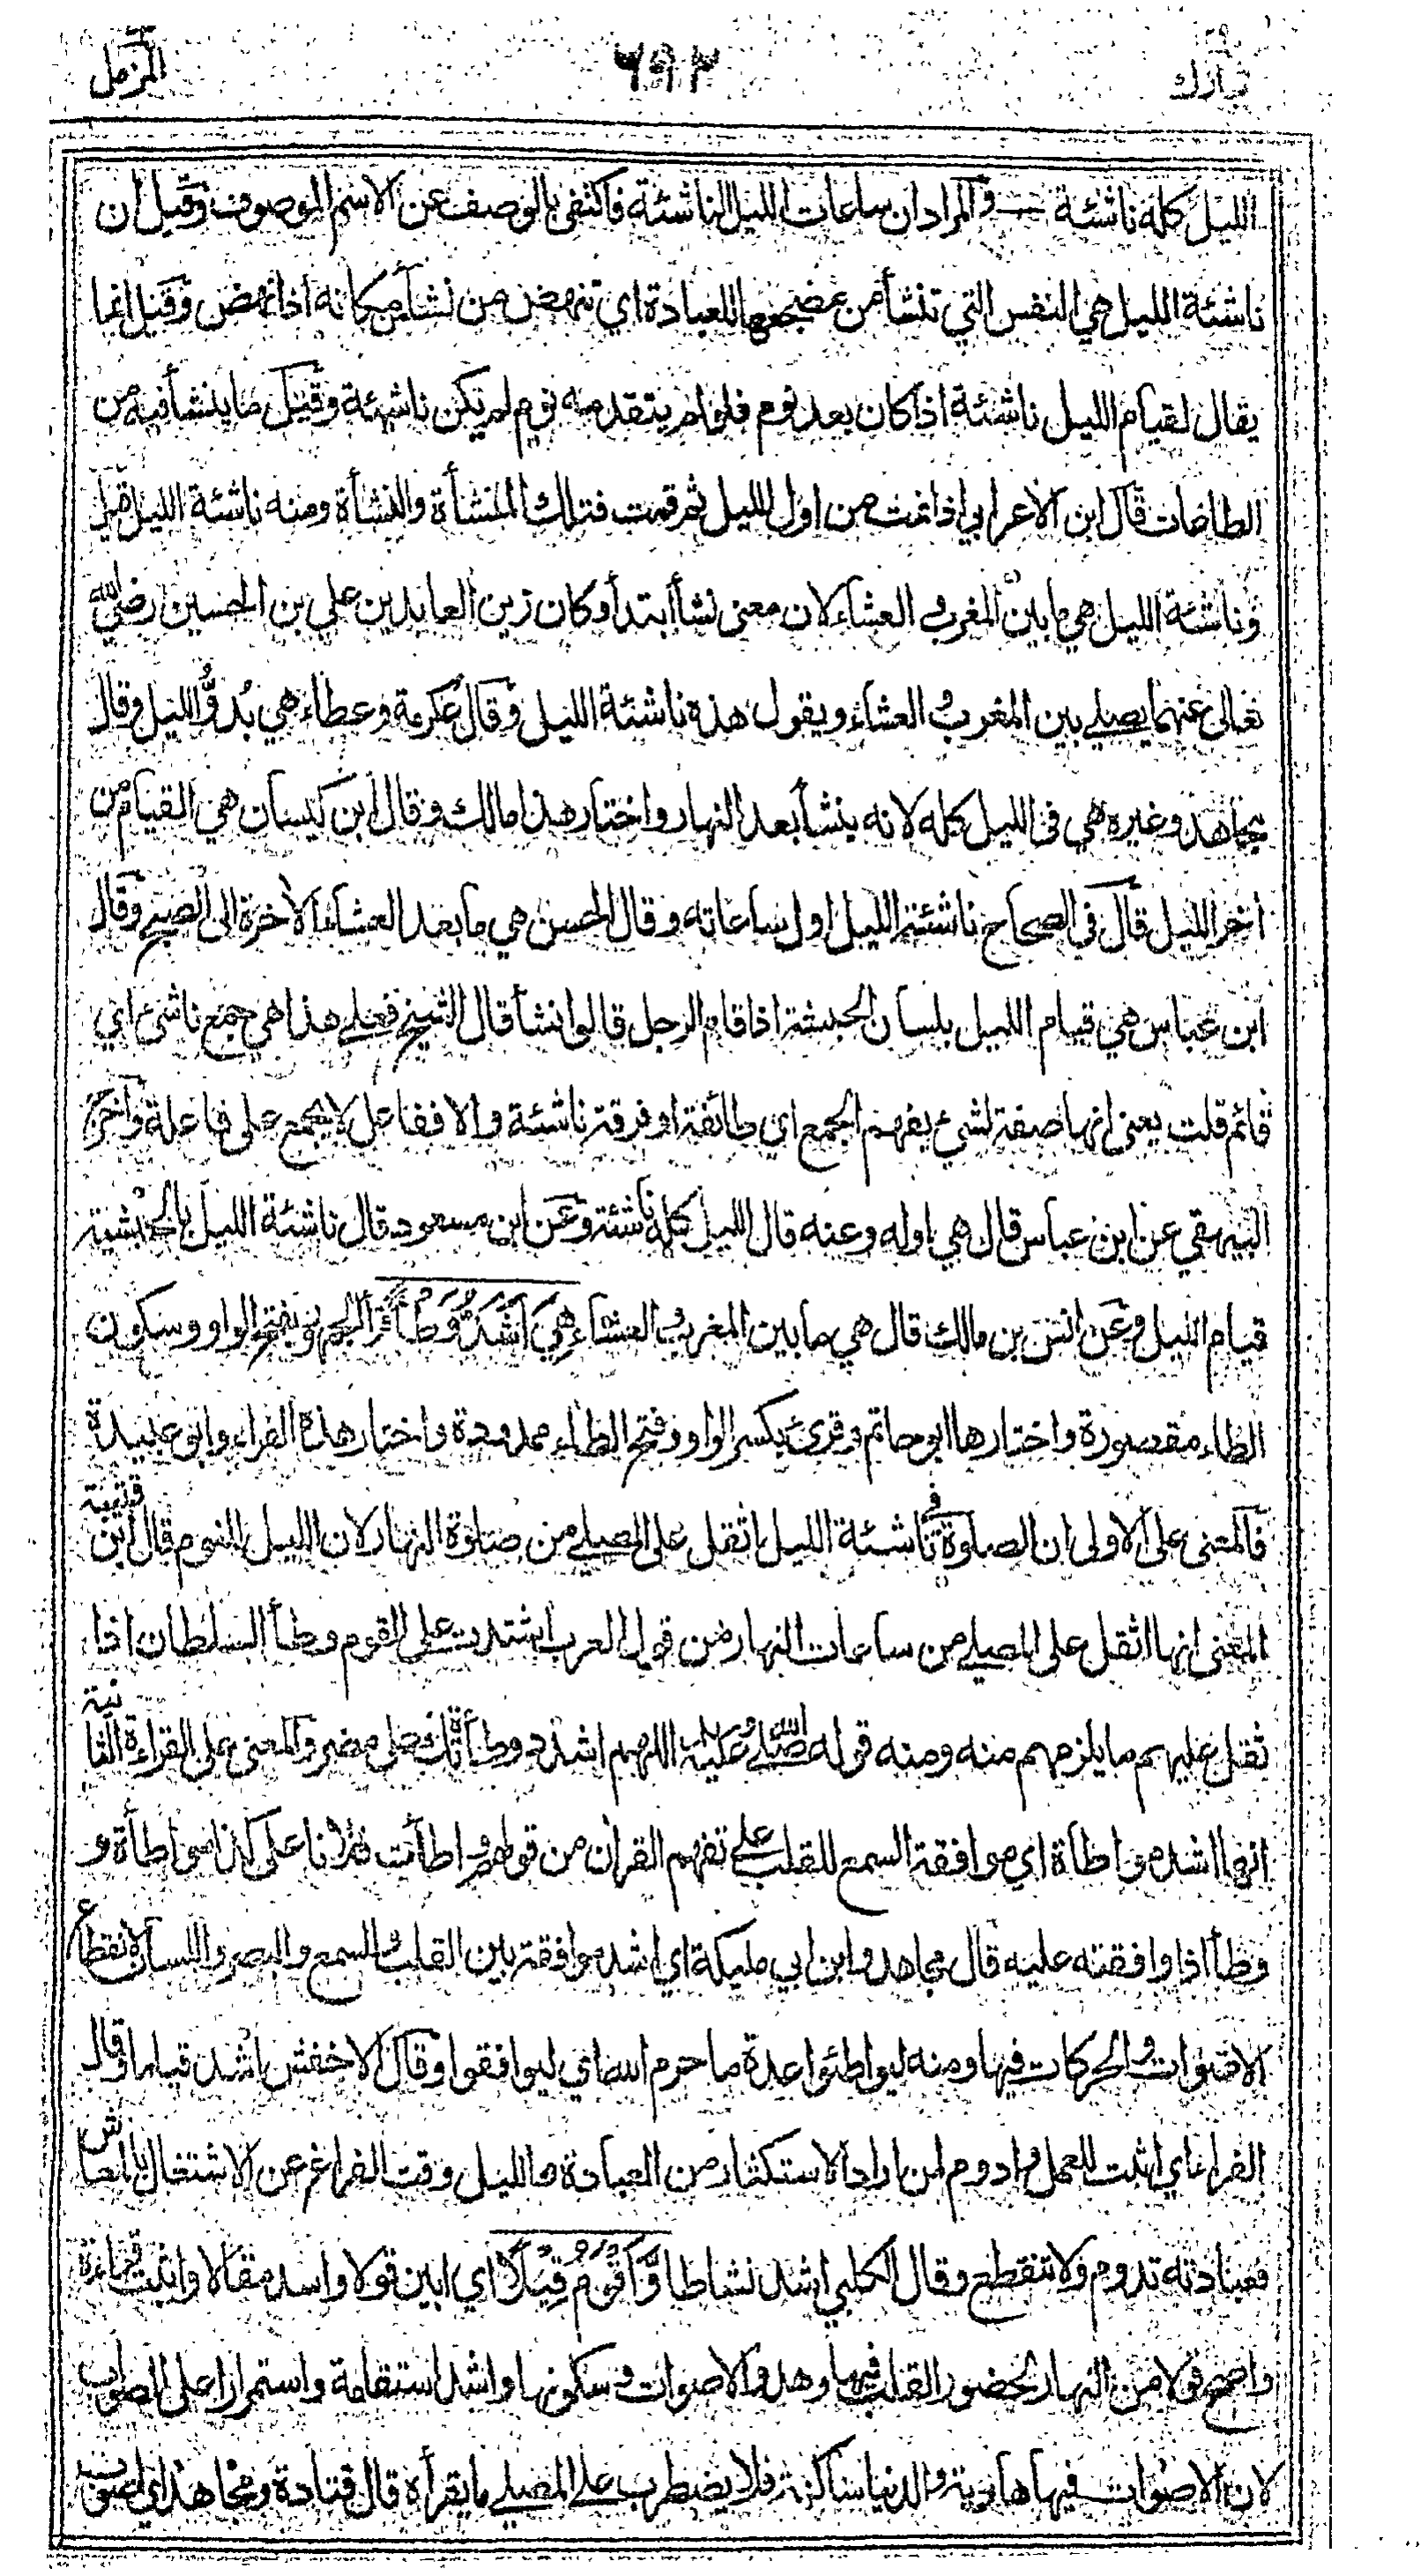 تبارك ٢٩
٦٩٣
المزمل
الليل كله ناشئة والمراد ان ساعات الليل الناشئة فاكتفى بالوصف عن الاسم الموصوف وقيل ان
ناشئة الليل هي النفس التي تنشأ من مضجعها للعبادة اي تنهض من نشأ من مكانه اذا نهض وقيل انما
يقال لقيام الليل ناشئة اذا كان بعد نوم فلو لم يتقدمه نوم لم يكن ناشئة وقيل ما ينشأ فيه من
الطاعات قال ابن الاعرابي اذا نمت من اول الليل ثم قمت فتلك المنشأة والنشأة ومنه ناشئة الليل قيل
وناشئة الليل هي ما بين المغرب والعشاء لان معنى نشأ ابتدأ وكان زين العابدين علي بن الحسين رضي الله
تعالى عنهما يصلي بين المغرب والعشاء ويقول هذه ناشئة الليل وقال عكرمة وعطاء هي بُدوُّ الليل وقال
مجاهد وغيره هي في الليل كله لانه ينشأ بعد النهار واختار هذا مالك وقال ابن كيسان هي القيام من
اخر الليل قال في الصحاح ناشئة الليل اول ساعاته وقال الحسن هي ما بعد العشاء الاخرة الى الصبح وقال
ابن عباس هي قيام الليل بلسان الحبشة اذا قام الرجل قالوا نشأ قال الشيخ فعلى هذا هي جمع ناشئ اي
قائم قلت يعني انها صفة لشيء يفهم الجمع اي طائفة او فرقة ناشئة والا ففاعل لا يجمع على فاعلة واخرج
البيهقي عن ابن عباس قال هي اوله وعنه قال الليل كله ناشئة وعن ابن مسعود قال ناشئة الليل بالحبشية
قيام الليل وعن انس بن مالك قال هي ما بين المغرب والعشاء هِيَ اَشَدُّ وَطْأً قرأ الجمهور بفتح الواو وسكون
الطاء مقصورة واختارها ابو حاتم وقرئ بكسر الواو وفتح الطاء ممدودة واختار هذه الفراء وابو عبيدة
فالمعنى على الاولى ان الصلوة في ناشئة الليل اثقل على المصلي من صلوة النهار لان الليل للنوم قال ابن قتيبة
المعنى انها اثقل على المصلي من ساعات النهار من قول العرب اشتدت على القوم وطأ السلطان اذا
ثقل عليهم ما يلزمهم منه ومنه قوله صلى الله عليه اللهم اشدد وطأتك على مضر والمعنى على القراءة الثانية
انها اشد مواطأة اي موافقة السمع للقلب على تفهم القران من قولهم واطأت فلانا على كذا مواطأة و
وطأ اذا وافقته عليه قال مجاهد وابن ابي مليكة اي اشد موافقة بين القلب والسمع والبصر واللسان لانقطاع
الاصوات والحركات فيها ومنه ليواطئوا عدة ما حرم الله اي ليوافقوا وقال الاخفش اشد قياما وقال
الفراء اي اثبت للعمل وادوم لمن اراد الاستكثار من العبادة والليل وقت الفراغ عن الاشتغال بالمعاش
فعبادته تدوم ولا تنقطع وقال الكلبي اشد نشاطا وَّاَقْوَمُ قِيْلًا اي ابين قولا واسد مقالا واثبت قراءة
واصح قولا من النهار لحضور القلب فيها وهدو الاصوات وسكونها واشد استقامة واستمرارا على الصواب
لان الاصوات فيها هادية والدنيا ساكنة فلا يضطرب على المصلي ما يقرأه قال قتادة ومجاهد اي اصوب